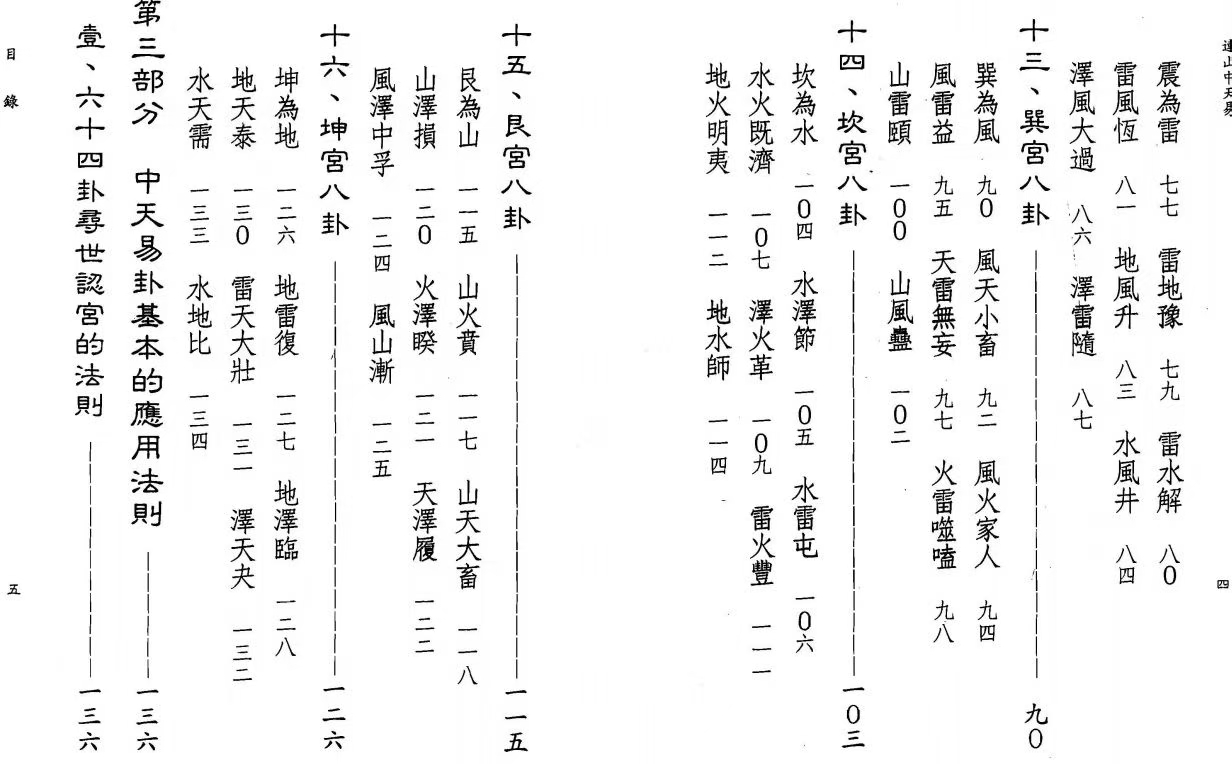 連山中天易
四
震為雷 七七 雷地豫 七九 雷水解 八0
雷風恆 八一 地風升 八三 水風井 八四
澤風大過 八六 澤雷隨 八七
十三、巽宮八卦 九0
巽為風 九0 風天小畜 九二 風火家人 九四
風雷益 九五 天雷無妄 九七 火雷噬嗑 九八
山雷頤 一00 山風蠱 一0二
十四、坎宮八卦 一0三
坎為水 一0四 水澤節 一0五 水雷屯 一0六
水火既濟 一0七 澤火革 一0九 雷火豐 一一一
地火明夷 一一二 地水師 一一四
十五、艮宮八卦 一一五
艮為山 一一五 山火賁 一一七 山天大畜 一一八
山澤損 一二0 火澤睽 一二一 天澤履 一二二
風澤中孚 一二四 風山漸 一二五
十六、坤宮八卦 一二六
坤為地 一二六 地雷復 一二七 地澤臨 一二八
地天泰 一三0 雷天大壯 一三一 澤天夬 一三二
水天需 一三三 水地比 一三四
第三部分 中天易卦基本的應用法則 一三六
壹、六十四卦尋世認宮的法則 一三六
目錄
五